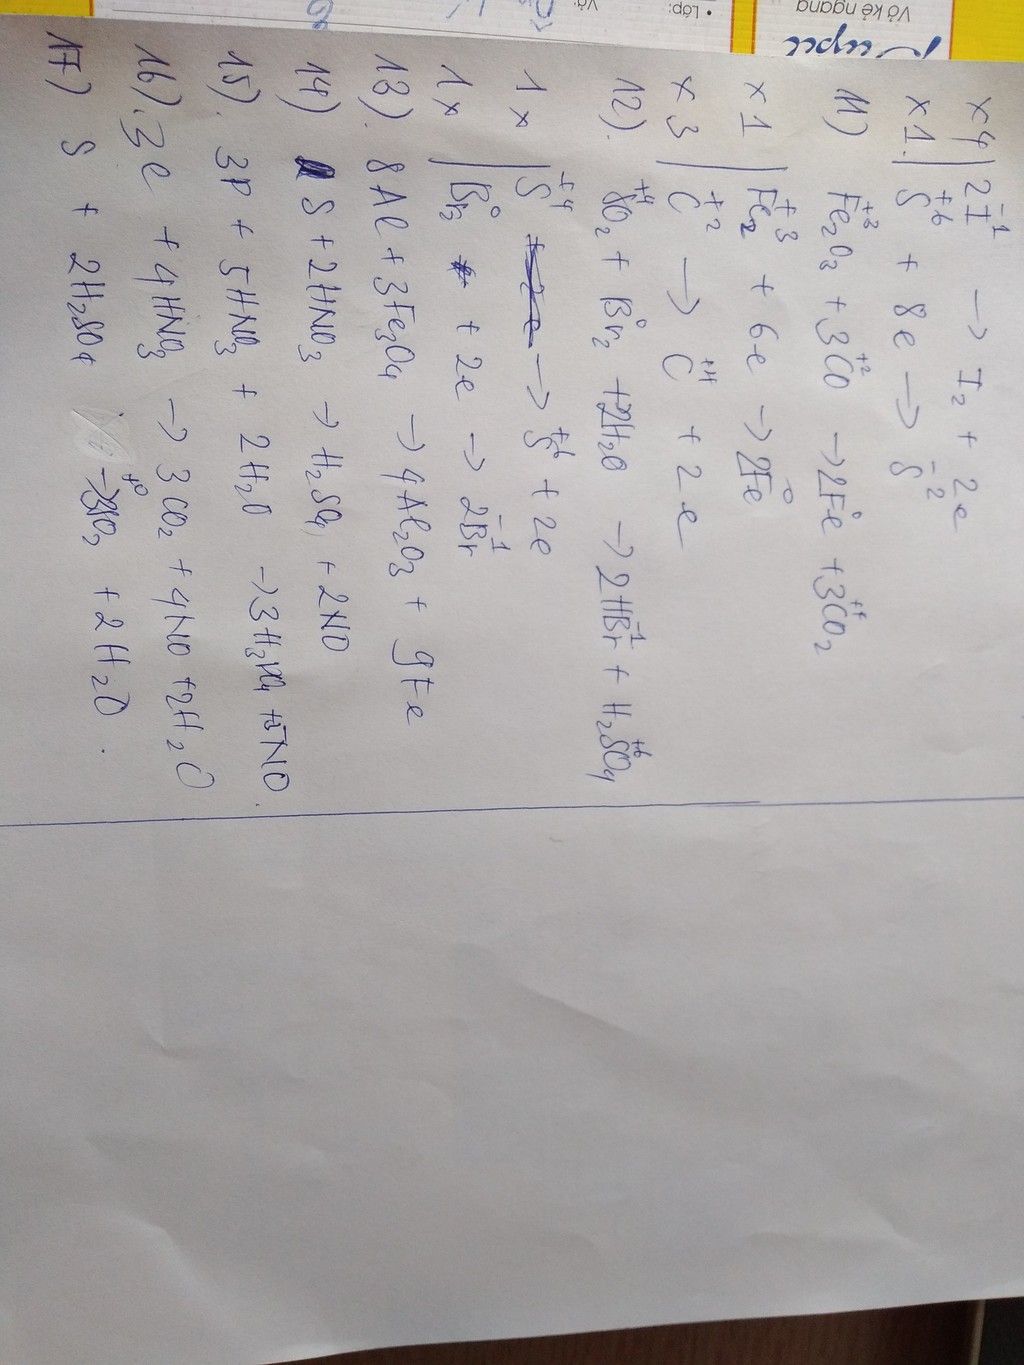 Vở kẻ ngang
• Lớp:
x4 | 2I⁻¹ → I₂ + 2e
x1. | S⁺⁶ + 8e → S⁻²
11) Fe₂⁺³O₃ + 3C⁺²O → 2Fe⁰ + 3C⁺⁴O₂
x1 | Fe₂⁺³ + 6e → 2Fe⁰
x3 | C⁺² → C⁺⁴ + 2e
12). S⁺⁴O₂ + Br₂⁰ + 2H₂O → 2HBr⁻¹ + H₂S⁺⁶O₄
1x | S⁺⁴ → S⁺⁶ + 2e
1x | Br₂⁰ + 2e → 2Br⁻¹
13). 8Al + 3Fe₃O₄ → 4Al₂O₃ + 9Fe
14) S + 2HNO₃ → H₂SO₄ + 2NO
15). 3P + 5HNO₃ + 2H₂O → 3H₃PO₄ + 5NO.
16). 3C + 4HNO₃ → 3CO₂ + 4NO + 2H₂O
17) S + 2H₂SO₄ → 3SO₂ + 2H₂O.